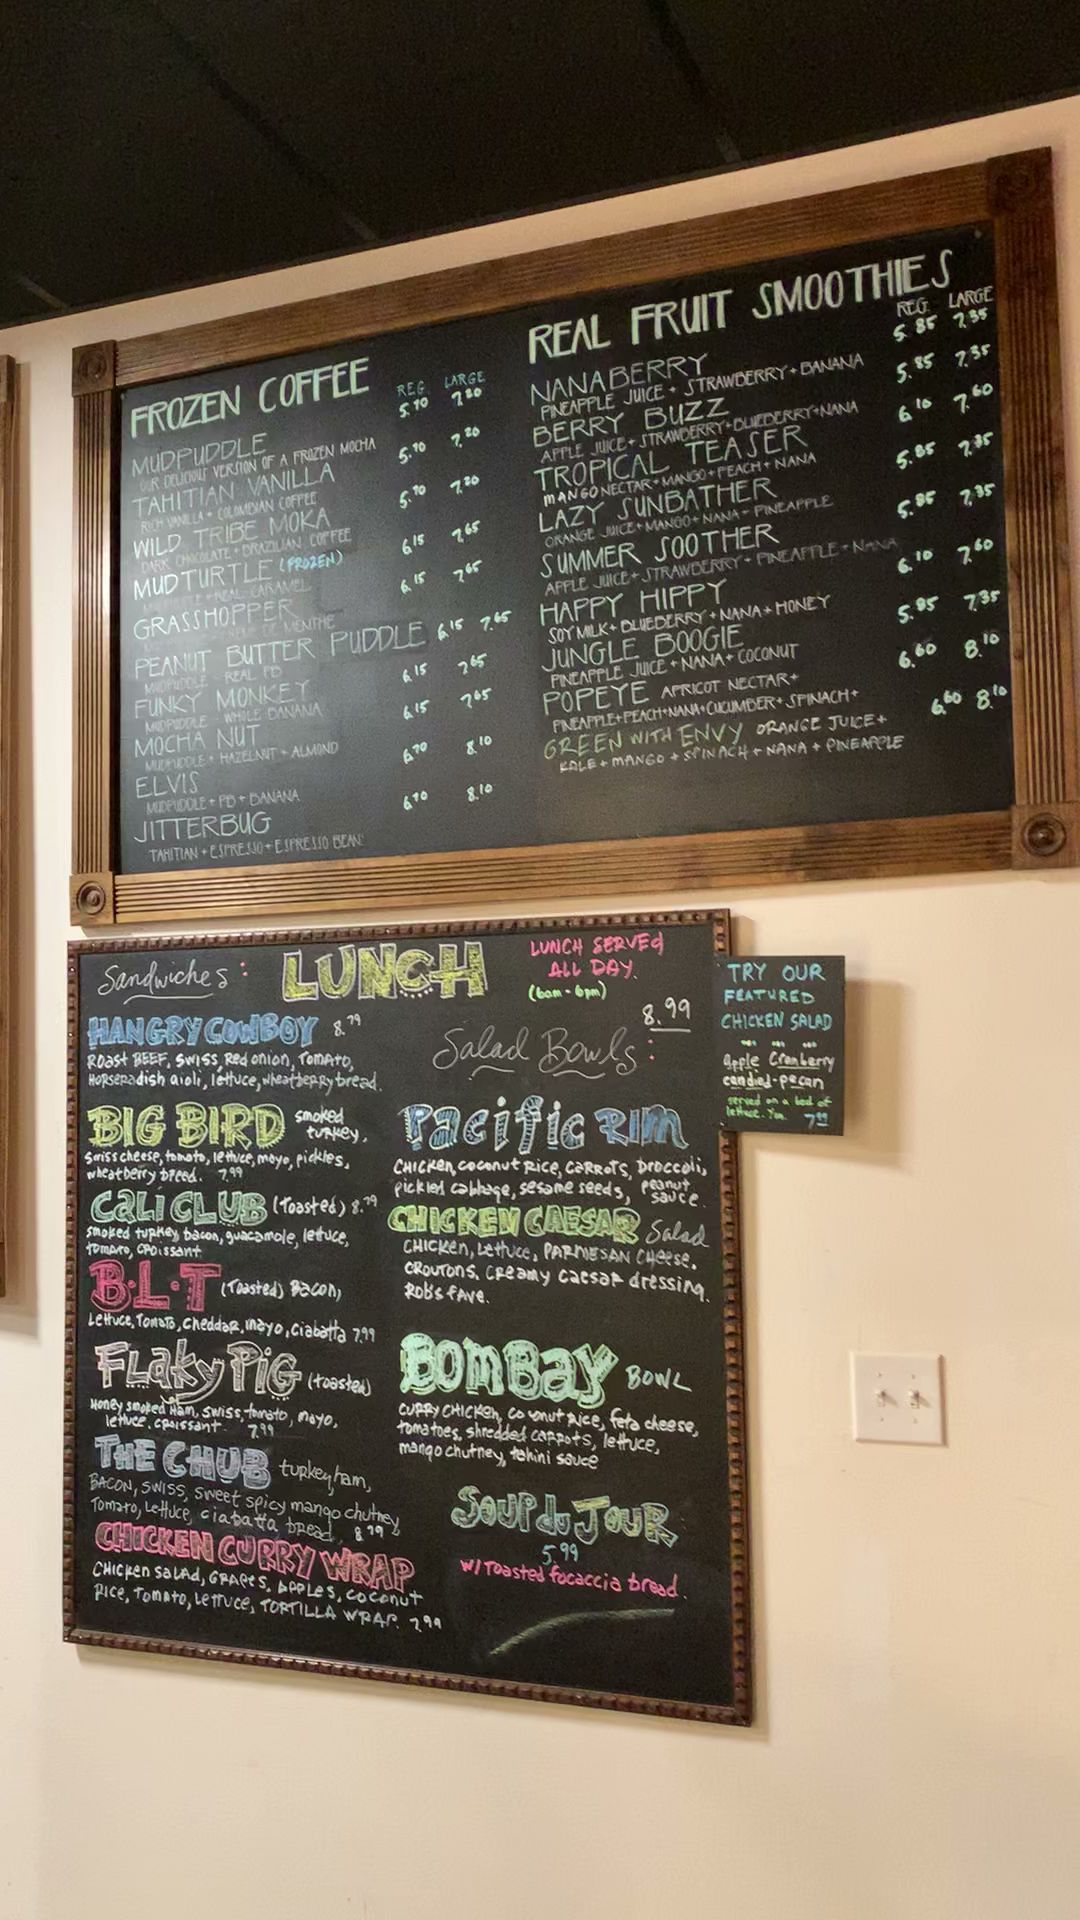 FROZEN COFFEE
REG. LARGE
5.90 7.20
MUDPUDDLE
OUR DELICIOUS VERSION OF A FROZEN MOCHA
5.90 7.20
TAHITIAN VANILLA
RICH VANILLA + COLOMBIAN COFFEE
5.90 7.20
WILD TRIBE MOKA
DARK CHOCOLATE + BRAZILIAN COFFEE
6.15 7.65
MUDTURTLE (FROZEN)
MUDPUDDLE + REAL CARAMEL
6.15 7.65
GRASSHOPPER
CREME DE MENTHE
PEANUT BUTTER PUDDLE 6.15 7.65
MUDPUDDLE REAL PB
6.15 7.65
FUNKY MONKEY
MUDPUDDLE WHOLE BANANA
6.15 7.65
MOCHA NUT
MUDPUDDLE + HAZELNUT + ALMOND
6.70 8.10
ELVIS
MUDPUDDLE + PB + BANANA
6.90 8.10
JITTERBUG
TAHITIAN + ESPRESSO + ESPRESSO BEAN
REAL FRUIT SMOOTHIES
REG. LARGE
5.85 7.35
NANABERRY
PINEAPPLE JUICE + STRAWBERRY + BANANA
5.85 7.35
BERRY BUZZ
APPLE JUICE + STRAWBERRY + BLUEBERRY + NANA
6.10 7.60
TROPICAL TEASER
MANGO NECTAR + MANGO + PEACH + NANA
5.85 7.35
LAZY SUNBATHER
ORANGE JUICE + MANGO + NANA + PINEAPPLE
5.85 7.35
SUMMER SOOTHER
APPLE JUICE + STRAWBERRY + PINEAPPLE + NANA
6.10 7.60
HAPPY HIPPY
SOY MILK + BLUEBERRY + NANA + HONEY
5.85 7.35
JUNGLE BOOGIE
PINEAPPLE JUICE + NANA + COCONUT
6.60 8.10
POPEYE APRICOT NECTAR +
PINEAPPLE + PEACH + NANA + CUCUMBER + SPINACH +
6.60 8.10
GREEN WITH ENVY ORANGE JUICE +
KALE + MANGO + SPINACH + NANA + PINEAPPLE
Sandwiches:
LUNCH
LUNCH SERVEd
ALL DAY.
(6am - 6pm)
HANGRY COWBOY 8.79
ROAST BEEF, SWISS, Red onion, Tomato,
Horseradish aioli, lettuce, wheatberry bread.
BIG BIRD smoked
turkey,
Swiss cheese, tomato, lettuce, mayo, pickles,
wheatberry bread. 7.99
CALI CLUB (Toasted) 8.79
smoked turkey, bacon, guacamole, lettuce,
tomato, croissant
B·L·T (Toasted) Bacon,
Lettuce, Tomato, Cheddar, mayo, ciabatta 7.99
FLAKY PIG (toasted)
Honey smoked Ham, swiss, tomato, mayo,
lettuce, croissant. 7.99
THE CHUB turkey, ham,
BACON, SWISS, sweet spicy mango chutney,
Tomato, Lettuce, ciabatta bread. 8.79
CHICKEN CURRY WRAP
CHICKEN SALAD, GRAPES, APPLES, coconut
Rice, Tomato, Lettuce, TORTILLA WRAP. 7.99
8.99
Salad Bowls:
Pacific RIM
CHICKEN, coconut rice, carrots, broccoli,
pickled cabbage, sesame seeds, peanut
sauce.
CHICKEN CAESAR Salad
CHICKEN, Lettuce, PARMESAN CHEESE,
CROUTONS, Creamy caesar dressing.
Rob's fave.
BOMBAY BOWL
CURRY CHICKEN, coconut rice, feta cheese,
tomatoes, shredded carrots, lettuce,
mango chutney, tahini sauce
SOUP du JOUR
5.99
w/ Toasted focaccia bread.
TRY OUR
FEATURED
CHICKEN SALAD
Apple Cranberry
candied-pecan
served on a bed of
lettuce.